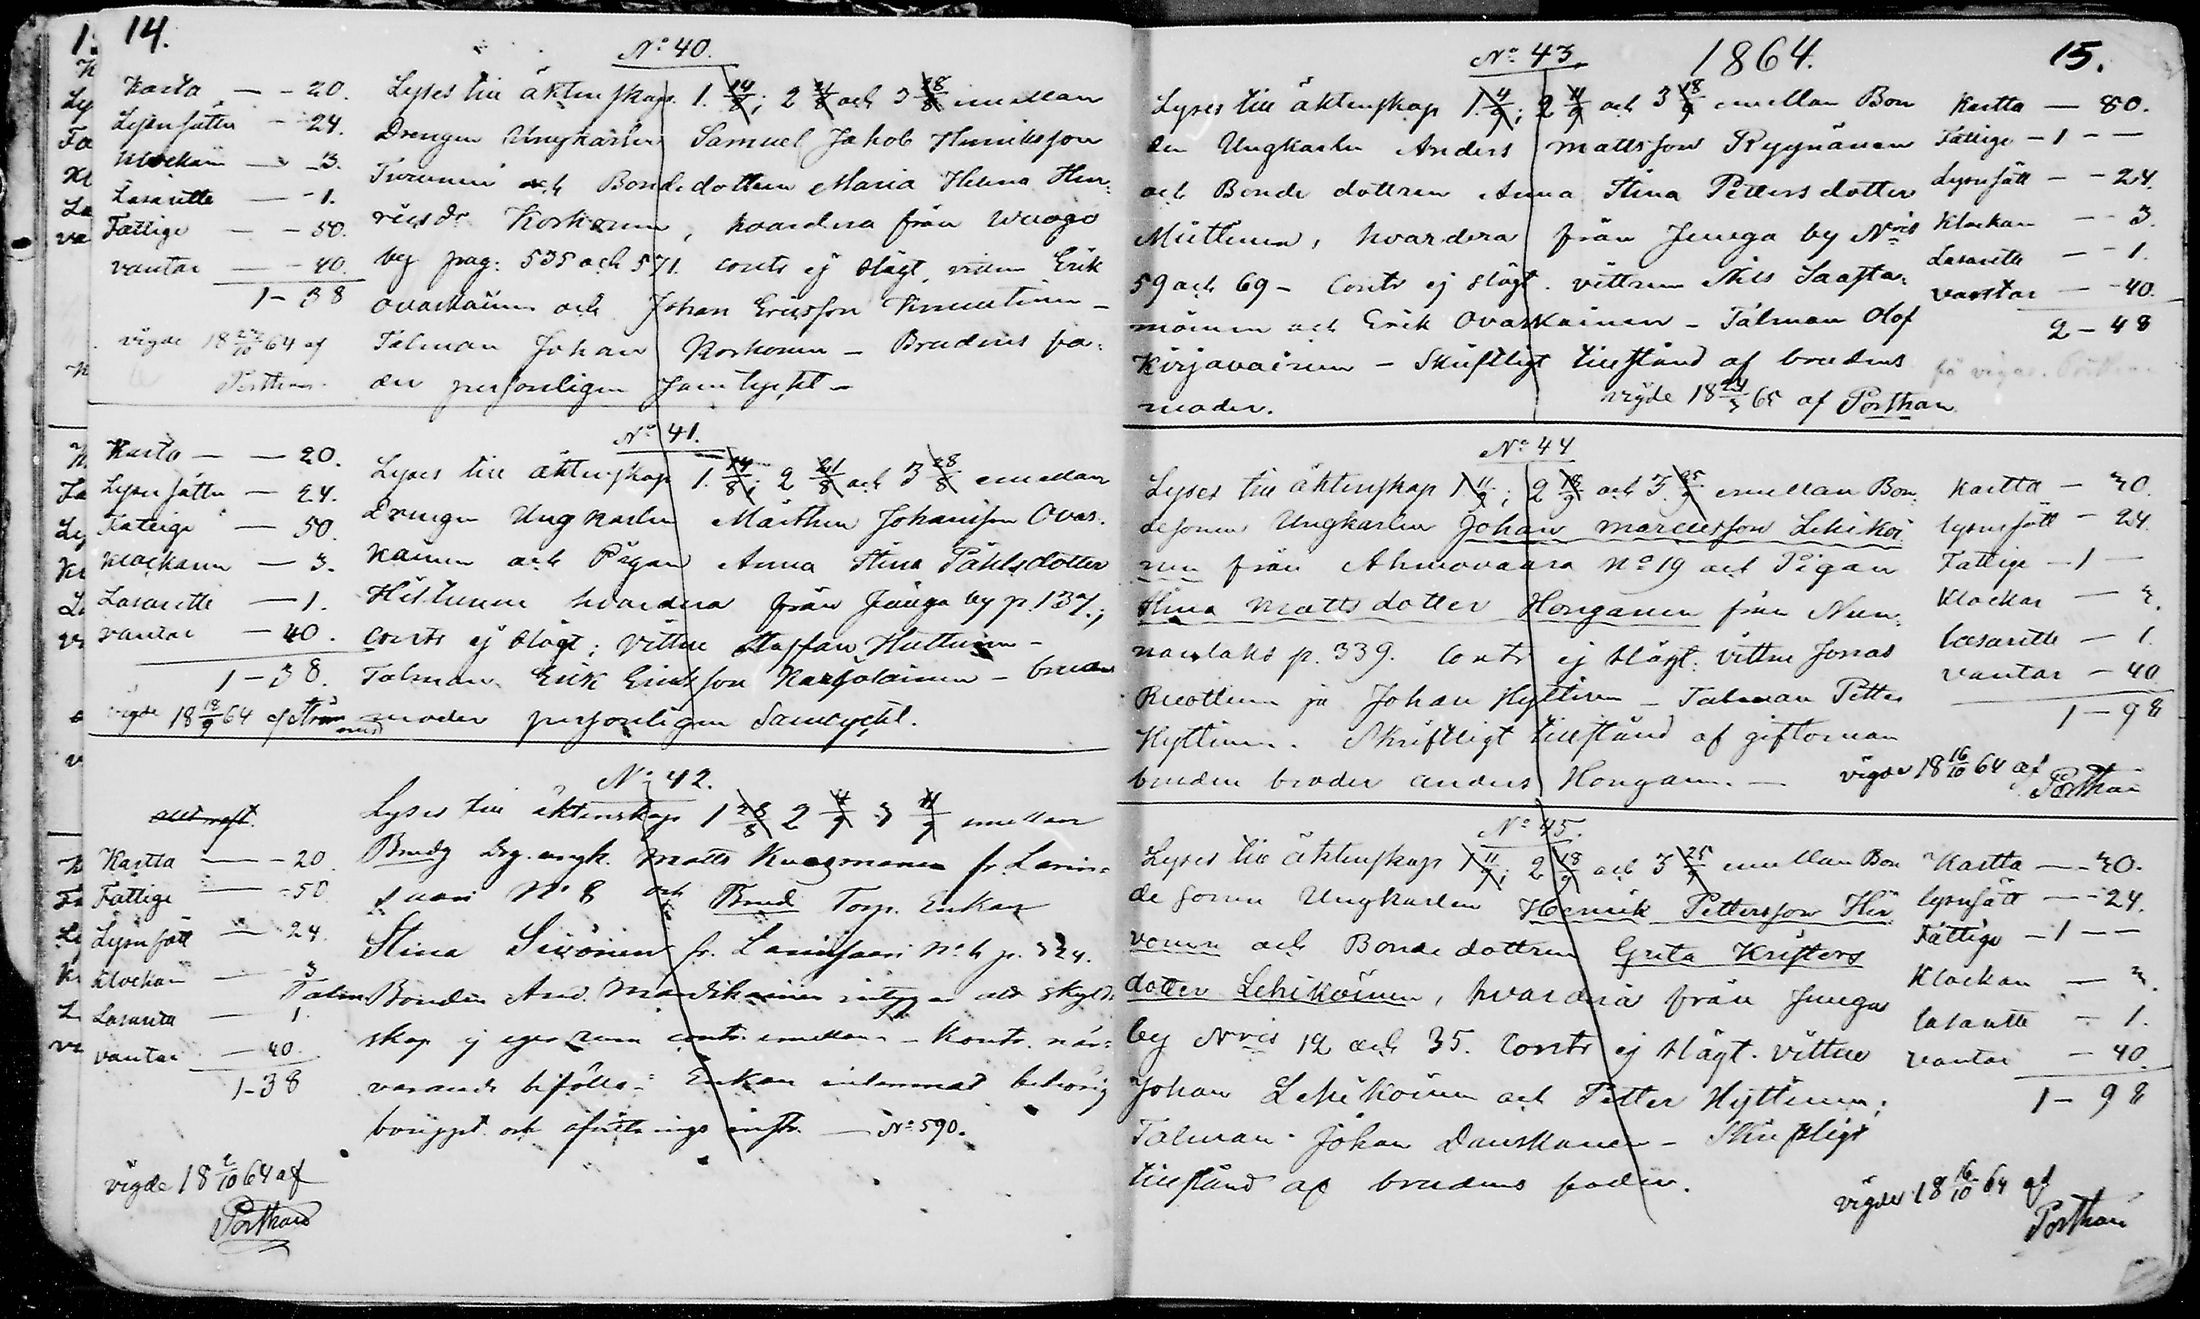 14.
No 40.
Karta — - 20.
Lysnsättn - 24.
Klockarn — - 3.
Lasarette — - 1.
Fattige — - 50.
vantar — - 40.
1 - 38
vigde 18 23/10 64 af
Porthan
Lyses till äktenskap 1. 14/8; 2 21/8 och 3 28/8 emellan
Drengen Ungkarlen Samuel Jakob Henriksson
Turunen och Bondedottren Maria Helena Hen-
ricsdr Korhonen, hvardera från Wuogo
by pag: 535 och 571. contr ej slägt, vittnen Erik
Ovaskainen och Johan Ericsson
Talman Johan Korhonen — Brudens fa-
der personligen samtyckt —
No 41.
Karta — - 20.
Lysnsättn — 24.
Fattige — 50.
Klockarn — 3.
Lasarette — 1.
vantar — 40.
1 - 38.
vigde 18 18/9 64 af
Lyses till äktenskap 1. 14/8; 2 21/8 och 3 28/8 emellan
Drengen Ungkarlen Mårthen Johansson Ovas-
kainen och Pigan Anna Stina Påhlsdotter
Hiltunen hvardera från Juuga by p. 137;
contr ej slägt; vittne Staffan Huttunen —
Talman Erik Ericksson Karjalainen — brudens
moder personligen Samtyckt.
No 42.
Kartta — - 20
Fattige — - 50
Lysnsätt — - 24
Klockarn — 3
Lasarette — 1
vantar — 40
1 - 38
vigde 18 2/10 64 af
Porthan
Lyses till äktenskap 1 28/8 2 4/9 3 11/9 emellan
Brudg Drg. ungk. Matts Kuosmanen fr. Larin-
saari No 8 och Brud Torp. Enkan
Stina Sivonen fr. Larinsaari No 4 p. 324.
Talm Bonden And. Mandikainen intygar att skyld-
skap ej eger rum contr. emellan — Kontr. när-
varande biföllo. Enkan inlemnat behörig
bouppt. och afvittrings instr. — No 590.
No 43. 1864. 15.
Lyses till äktenskap 1. 4/9; 2 11/9 och 3 18/9 emellan Bon
den Ungkarlen Anders Mattsson Ryynänen
och Bonde dottren Anna Stina Pettersdotter
Miettinen, hvardera från Juuga by Nris
59 och 69 — Contr ej slägt. vittnen Nils Saasta-
moinen och Erik Ovaskainen — Talman Olof
Kirjavainen — Skriftligt tillstånd af brudens
moder. vigde 18 24/3 65 af Porthan
Kartta — 80.
Fattige — 1 — —
Lysnsätt — - 24.
Klockan — - 3.
Lasarette — - 1.
vantar — - 40.
2 - 48
No 44
Lyses till äktenskap 1 11/9; 2 18/9 och 3 25/9 emellan Bon-
desonen Ungkarlen Johan Marcusson Lehikoi
nen från Ahmovaara No 19 och Pigan
Stina Mattsdotter Honganen från Nun-
nanlaks p. 339. Contr ej slägt. vittne Jonas
Ruottinen ja Johan Hyttinen — Talman Petter
Hyttinen. Skriftligt tillstånd af giftoman
brudens broder Anders Honganen. — vigde 18 16/10 64 af
Porthan
Kartta — 30.
lysnsätt — 24.
Fattige — 1 —
Klockar — 3.
lasarette — 1.
vantar — 40
1 - 98
No 45.
Lyses till äktenskap 1 11/9; 2 18/9 och 3 25/9 emellan Bon
de sonen Ungkarlen Henrik Pettersson Hir
vonen och Bonde dottren Greta Kristers
dotter Lehikoinen, hvardera från Juuga
by Nris 12 och 35. Contr ej slägt. vittne
Johan Lehikoinen och Petter Hyttinen;
Talman Johan Danskanen — Skriftligt
tillstånd af brudens fader.
Kartta — 30.
lysnsätt — 24.
Fattige — 1 — —
Klockan — 3.
lasarette — 1.
vantar — 40.
1 - 98
vigde 18 16/10 64 af
Porthan